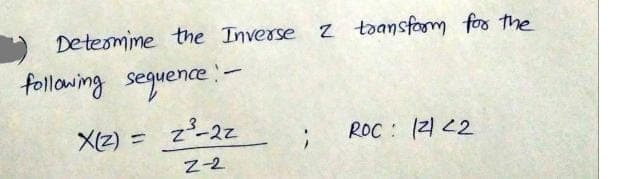 ) Determine the Inverse z transform for the
following sequence :-
X(z) = z³-2z / z-2 ; ROC : |z| <2